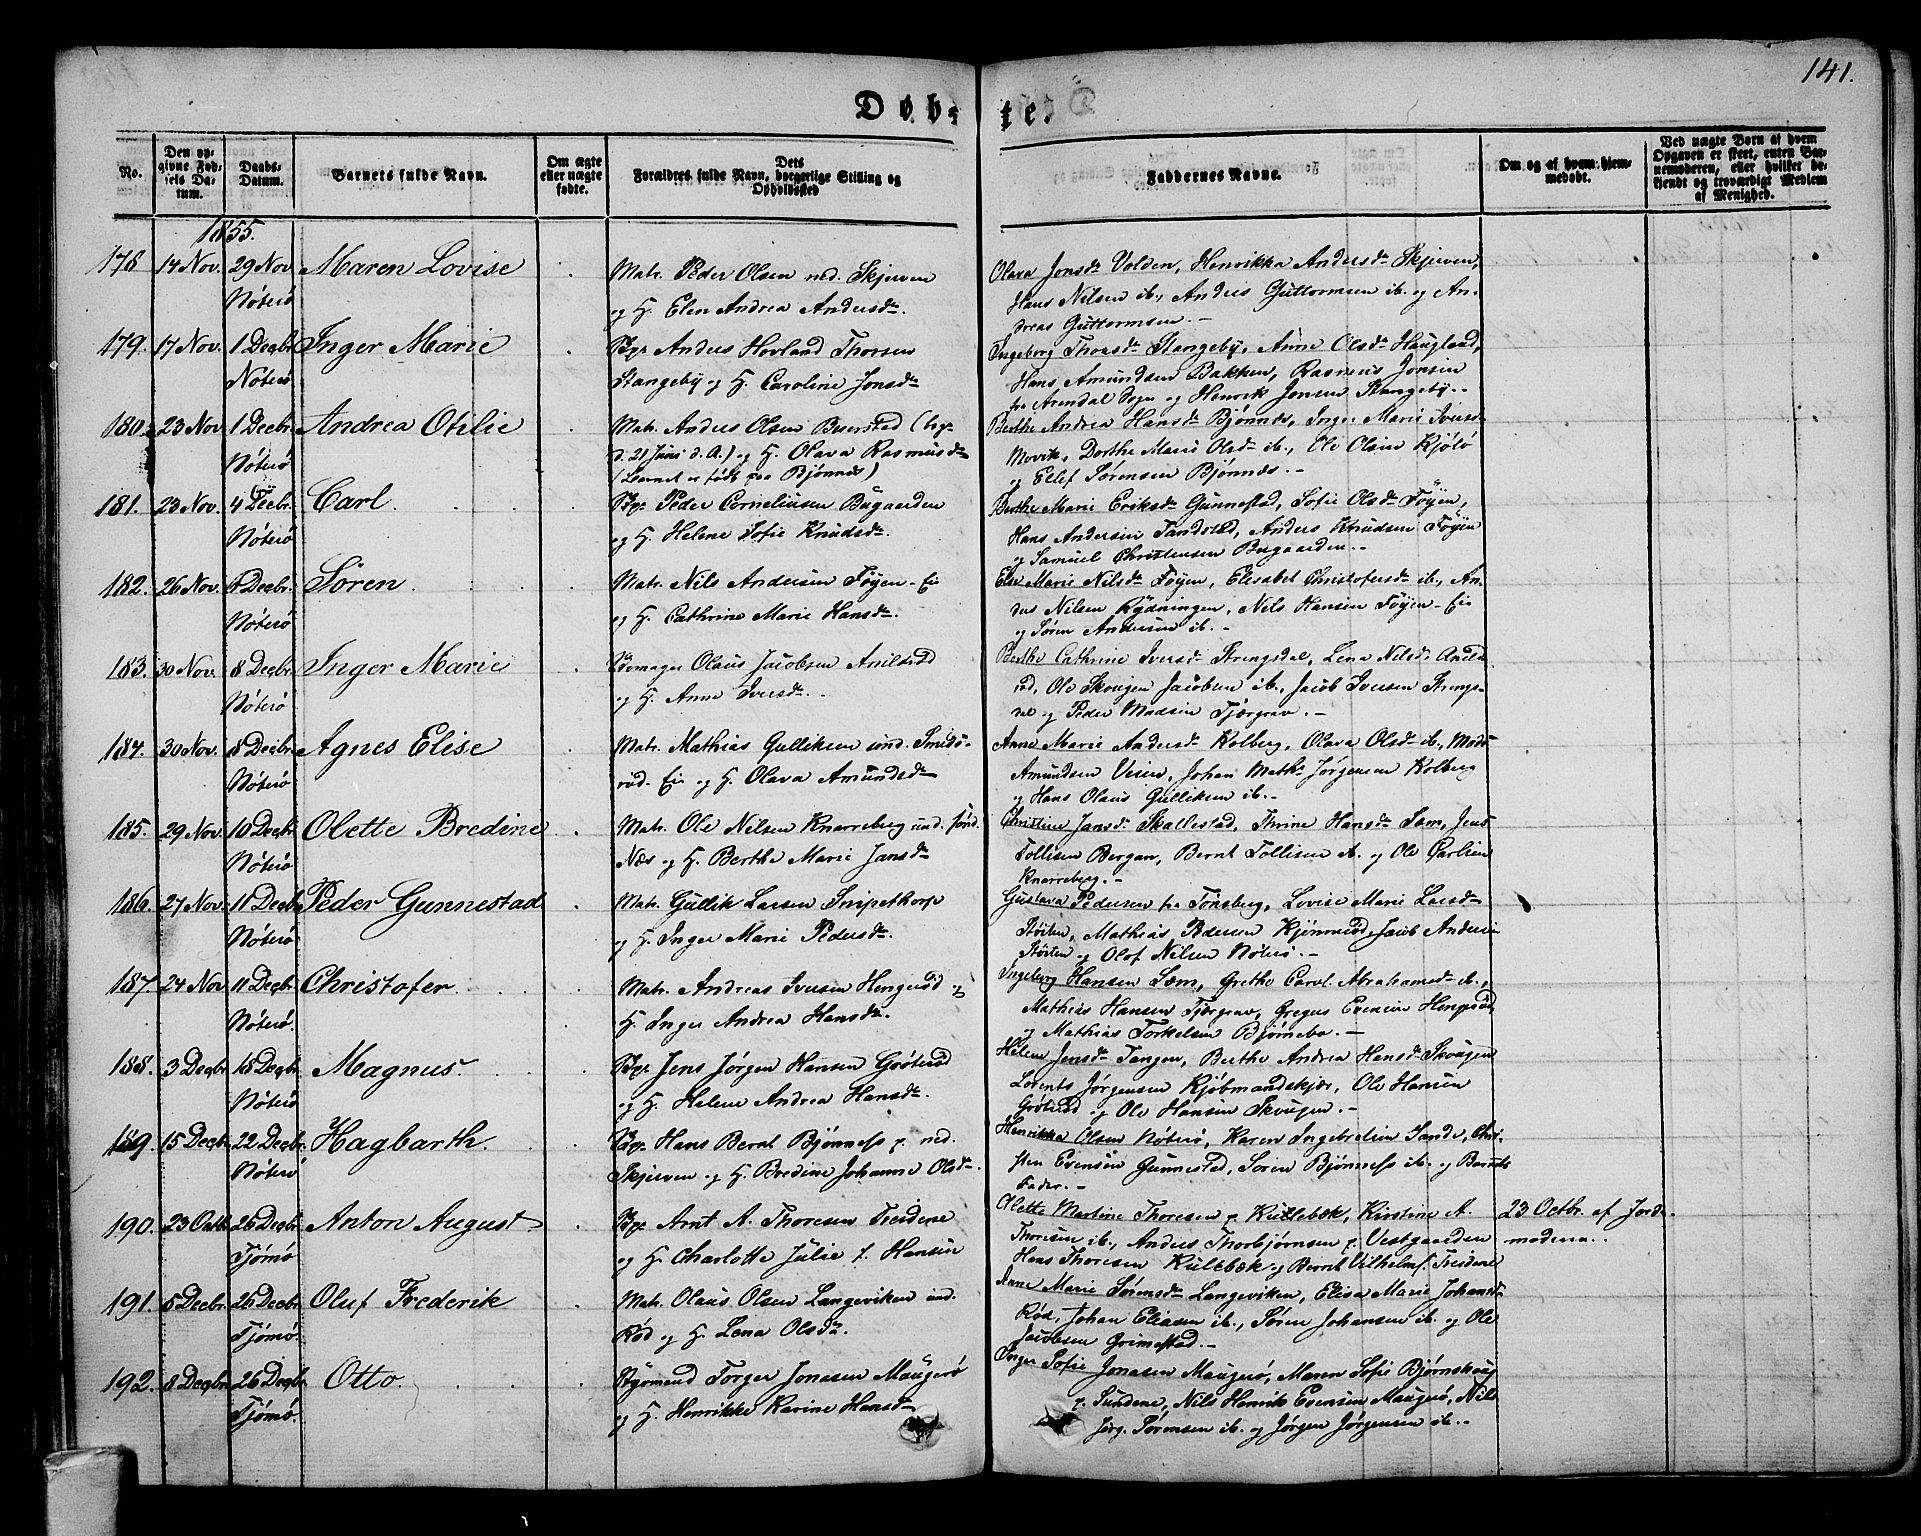 141.
Døb-te.
No.
Den op-
givne Fød-
sels Da-
tum.
Daabs-
Datum.
Barnets fulde Navn.
Om ægte
eller uægte
fødte.
Dets
Forældres fulde Navn, borgerlige Stilling og
Opholdssted
Faddernes Navne.
Om og af hvem hjem-
medøbt.
Ved uægte Børn af hvem
Opgaven er skeet, enten Bar-
nemoderen, eller hvilket be-
kjendt og troværdigt Medlem
af Menighed.
1855.
178 14 Nov. 29 Nov. Nóterö Maren Lovise
Matr. Peder Olsen ned. Skjerven
og H. Elen Andrea Andersdr.
Olava Jonsdr Volden, Henrikka Andersdr Skjerven,
Hans Nilsen ib., Andreas Guttormsen ib. og An-
dreas Guttormsen.-
179. 17 Nov. 1 Decbr. Nóterö Inger Marie
Bgr. Anders Hovland Thorsen
Stangeby og H. Caroline Jonsdr
Ingeborg Thorsdr Stangeby, Anne Olsdr Haugland,
Hans Amundsen Bakken, Rasmus Jonsen
fra Arendal Sogn og Henrik Jensen Stangeby.-
180. 23 Nov. 1 Decbr. Nóterö Andrea Otilie
Matr. Anders Olsen Buerstad (
d. 21 Juni d. A.) og H. Olava Rasmusdr
(Barnet er født paa Bjønnes)
Berthe Andrea Hansdr Bjønnes, Inger Marie Iversdr
Movik, Dorthe Marie Olsdr ib., Ole Olsen Kjölö
og Ellef Sørensen Bjønnes.-
181. 23 Nov. 4 Decbr. Nóterö Carl.
Bgr. Peder Corneliusen Bugaarden
og H. Helene Sofie Knudsdr.
Berthe Marie Eriksdr Gunnestad, Sofie Olsdr Føyen,
Hans Andersen Tandstad, Anders Knudsen Føyen
og Samuel Christensen Bugaarden.-
182. 26 Nov. 6 Decbr. Nóterö Sören
Matr. Nils Andersen Føyen-Ei
og H. Cathrine Marie Hansdr.
Else Marie Nilsdr Føyen, Elisabet Christofersdr ib., An-
ders Nilsen Rydningen, Nils Hansen Føyen-Ei
og Søren Andersen ib.-
183. 30 Nov. 8 Decbr. Nóterö Inger Marie
Skomager Olaus Jacobsen Anilsrød
og H. Anne Iversdr.
Berthe Cathrine Iversdr Strengsdal, Lena Nilsdr Anils-
rød, Ole Skougen Jacobsen ib., Jacob Iversen Strengs-
dal og Peder Madsen Tjærgrav.-
184. 30 Nov. 8 Decbr. Nóterö Agnes Elise
Matr. Mathias Gulliksen sönd. Smids-
röd-Ei og H. Olava Amundsdr
Anne Marie Andersdr Kolberg, Olava Olsdr ib., Mads
Amundsen Veien, Johan Maths Jørgensen Kolberg
og Hans Olaus Gulliksen ib.-
185. 29 Nov. 10 Decbr. Nóterö Olette Bredine
Matr. Ole Nilsen Knarreberg und. sönd.
Næs og H. Berthe Marie Jansdr
Christine Jansdr Skallestad, Thrine Hansdr Sæm, Jens
Tollisen Bergan, Bernt Tollisen ib. og Ole Carlsen
Knarreberg.-
186. 27 Nov. 11 Decbr. Nóterö Peder Gunnestad
Matr. Gullik Larsen Smipetkorp
og H. Inger Marie Pedersdr.
Gustava Pedersen fra Tönsberg, Lovise Marie Larsdr
Störten, Mathias Pedersen Kjønnerød, Jacob Andersen
Störten og Olof Nilsen Nöterö.-
187. 24 Nov. 11 Decbr. Nóterö. Christofer.
Matr. Andreas Iversen Hengsrød og
H. Inger Andrea Hansdr.
Ingeborg Hansen Sæm, Grethe Carol. Abrahamsdr ib.,
Mathias Hansen Tjørgrav, Gregus Evensen Hengsrød,
og Mathias Torkelsen Bjørnebo.-
188. 3 Decbr. 18 Decbr. Nóterö Magnus.
Bgr. Jens Jørgen Hansen Gröterød
og H. Helene Andrea Hansdr.
Helene Jensdr Tangen, Berthe Andrea Hansdr Skougen
Lorents Jørgensen Kjøbmandskjær, Ole Hansen
Gröterød og Ole Hansen Skougen.-
189. 15 Decbr. 22 Decbr. Nóterö Hagbarth.
Bgr. Hans Bernt Bjønness p. ned.
Skjerven og H. Bredine Johanne Olsdr.
Henrikka Olsen Nöterö, Karen Ingebretsen Sande, Chri-
sten Evensen Gunnestad, Søren Bjønness ib. og Barnets
Fader.-
190. 23 Octb. 26 Decbr. Tjömö Anton August
Bgr. Arnt A. Thoresen Treidene
og H. Charlotte Julie f. Hansen
Olette Martine Thoresen p. Kullebæk, Kirstine A.
Thoresen ib., Anders Thorbjørnsen p. Vestgaarden
Hans Thoresen Kullebæk og Bernt Vilhelm f. Treidene
23 Octbr. af Jorde-
moderen.
191. 5 Decbr. 26 Decbr. Tjömö. Oluf Frederik
Matr. Olaus Olsen Langeviken und.
Röd og H. Lena Olsdr.
Anne Marie Sørensdr Langeviken, Elisa Marie Johansdr
Röd, Johan Eliasen ib., Søren Johansen ib. og Ole
Jacobsen Grimestad.-
192. 8 Decbr. 26 Decbr. Tjömö. Otto.
Bygmand Torger Jonasen Maugerö
og H. Henrikke Karine Hansdr
Inger Sofie Jonasen Maugerö, Maren Sofie Bjørnskoug
p. Sundene, Nils Henrik Evensen Maugerö, Nils
Jørg. Sørensen ib. og Jørgen Jørgensen ib.-